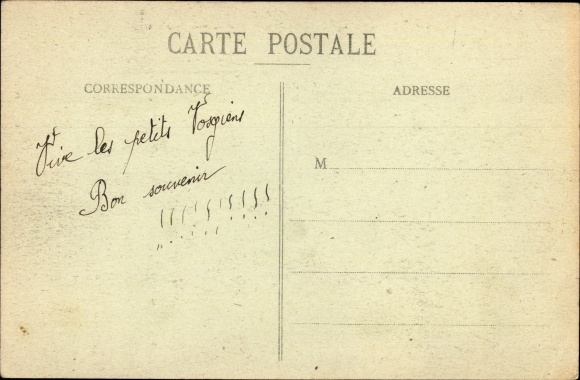 CARTE POSTALE
CORRESPONDANCE
ADRESSE
Vive les petits Vosgiens
Bon souvenir
!!!!!!!!!
M